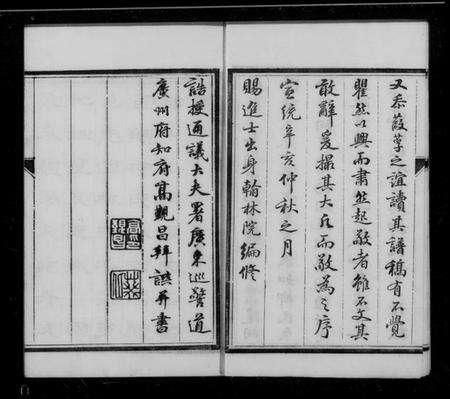 又忝葭莩之誼讀其譜稿有不覺
瞿然以興而肅然起敬者雖不文其
敢辭爰撮其大旨而敬為之序
宣統辛亥仲秋之月
賜進士出身翰林院編修
誥授通議大夫署廣東巡警道
廣州府知府高覲昌拜譔并書